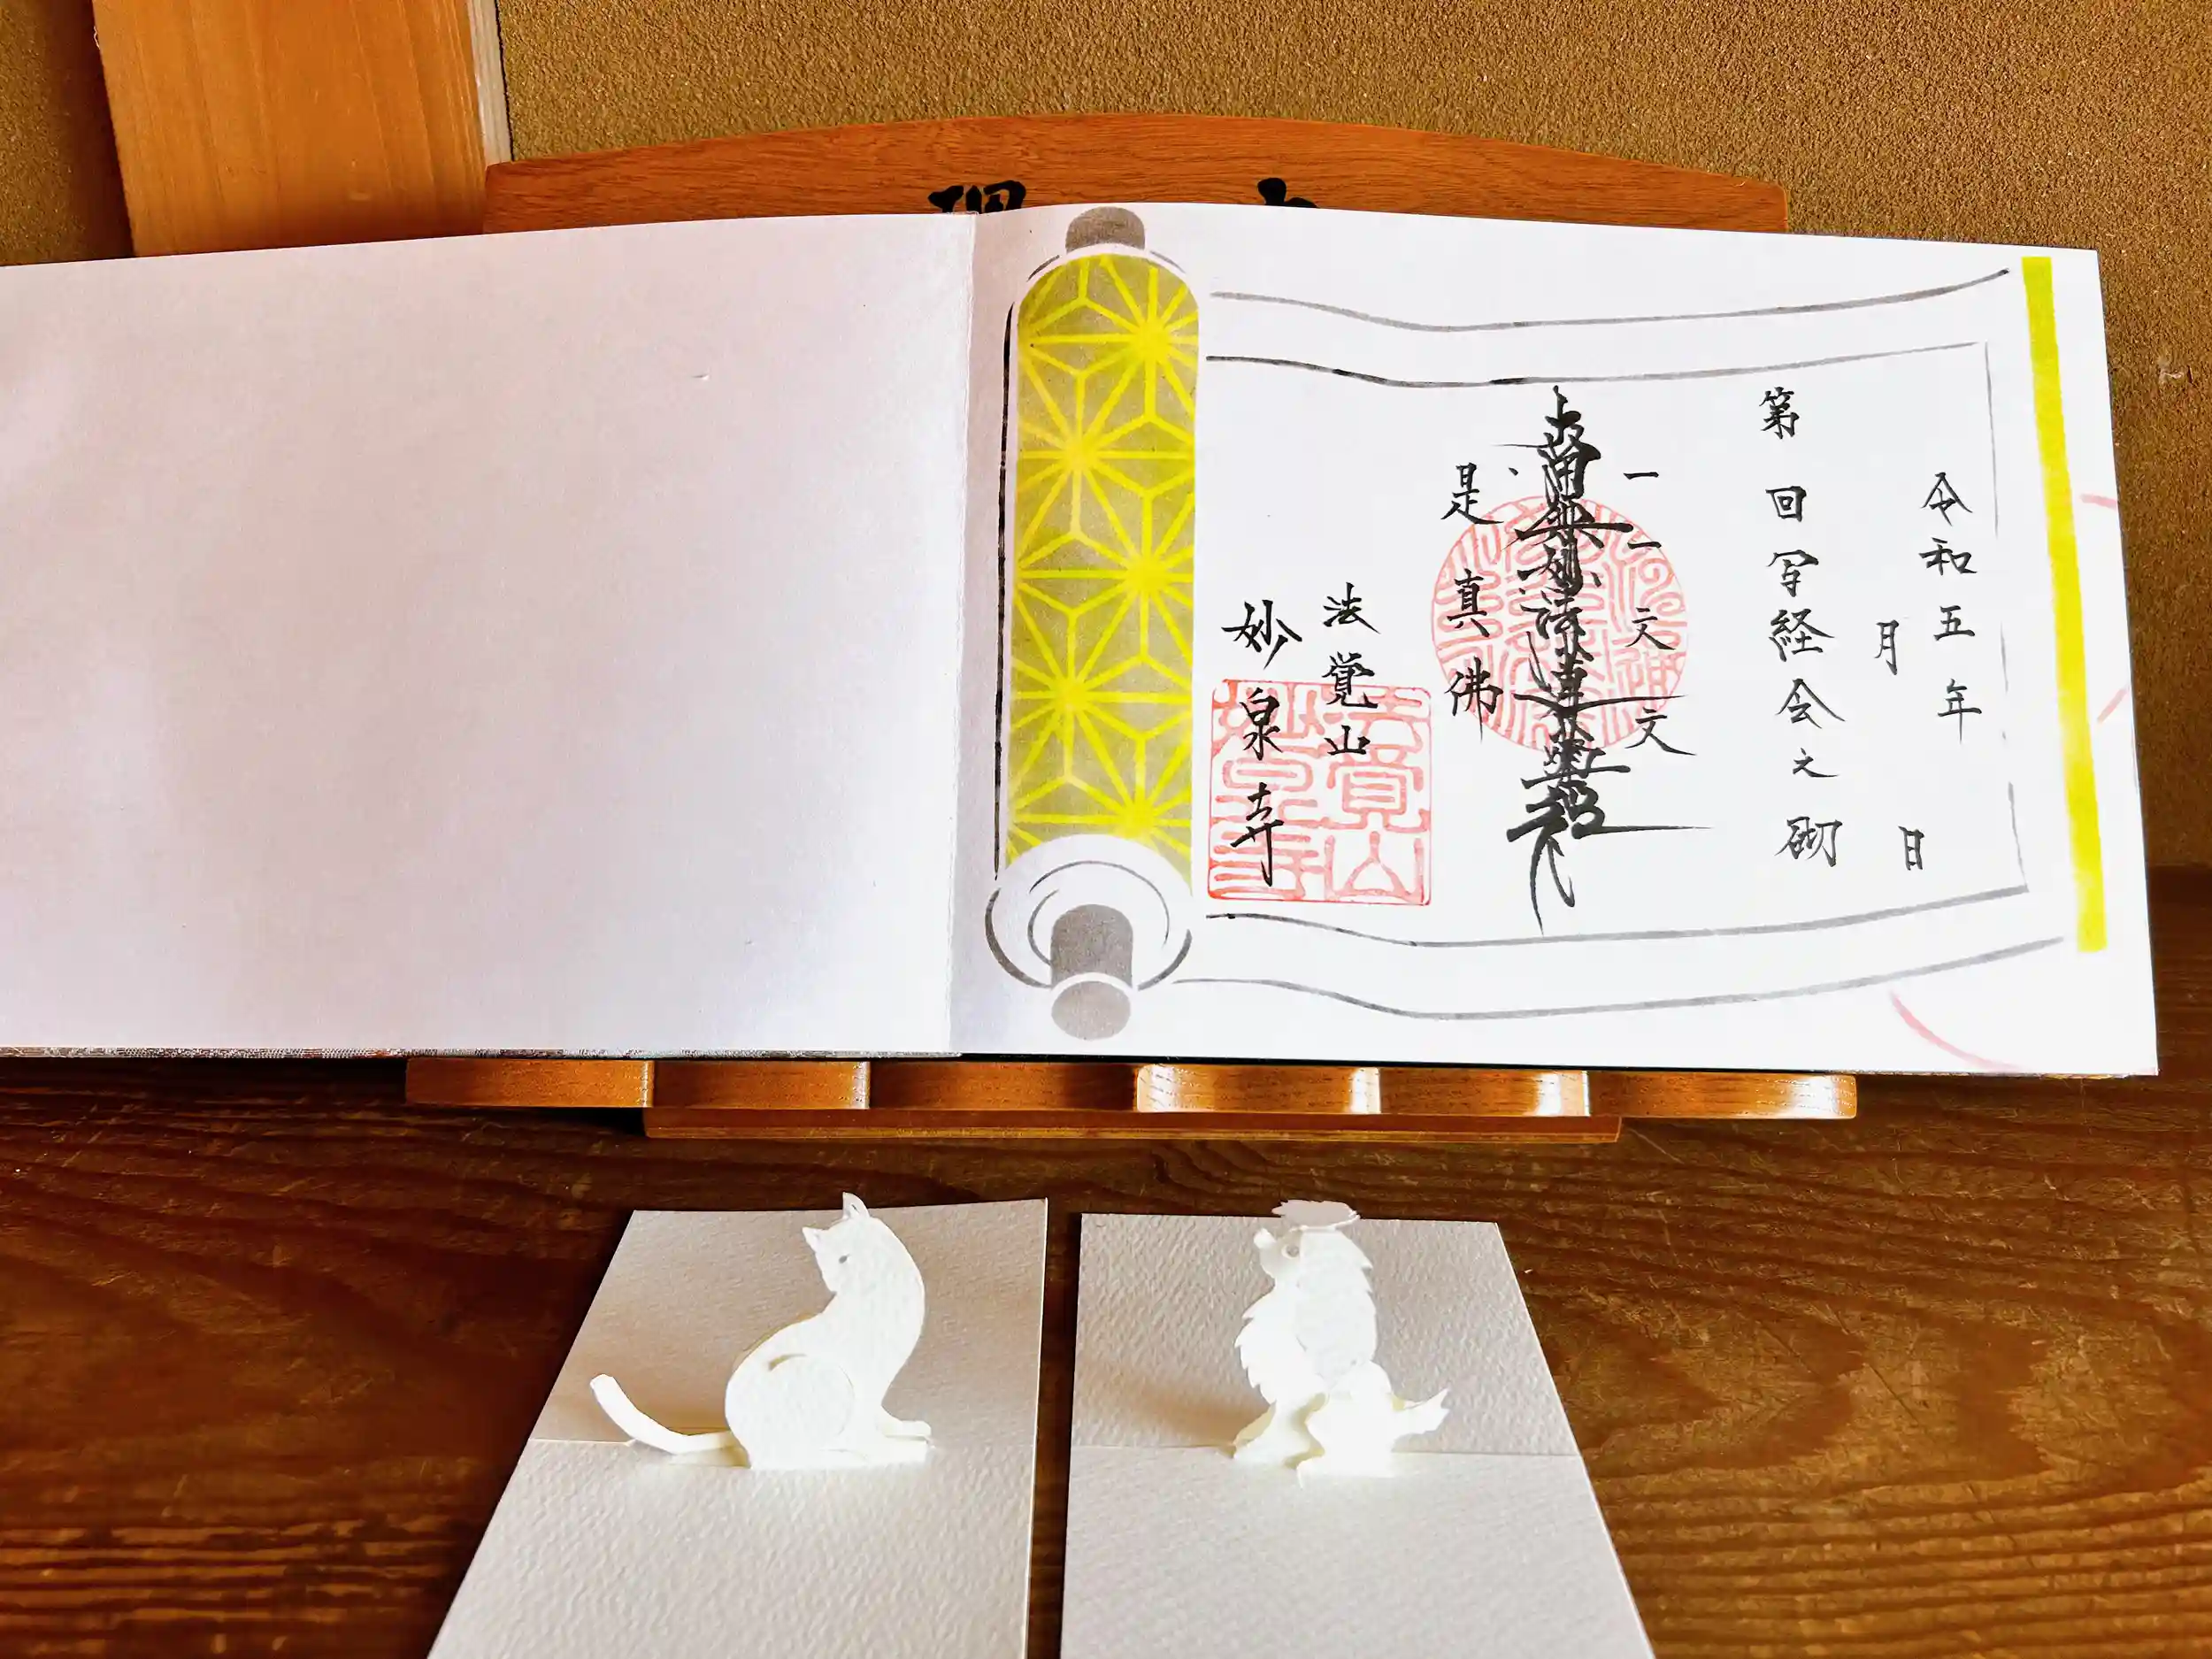 令和五年
月 日
第 回写経会之砌
一一文文
南無妙法蓮華経
是真佛
法覚山
妙泉寺
法覚山
妙泉寺